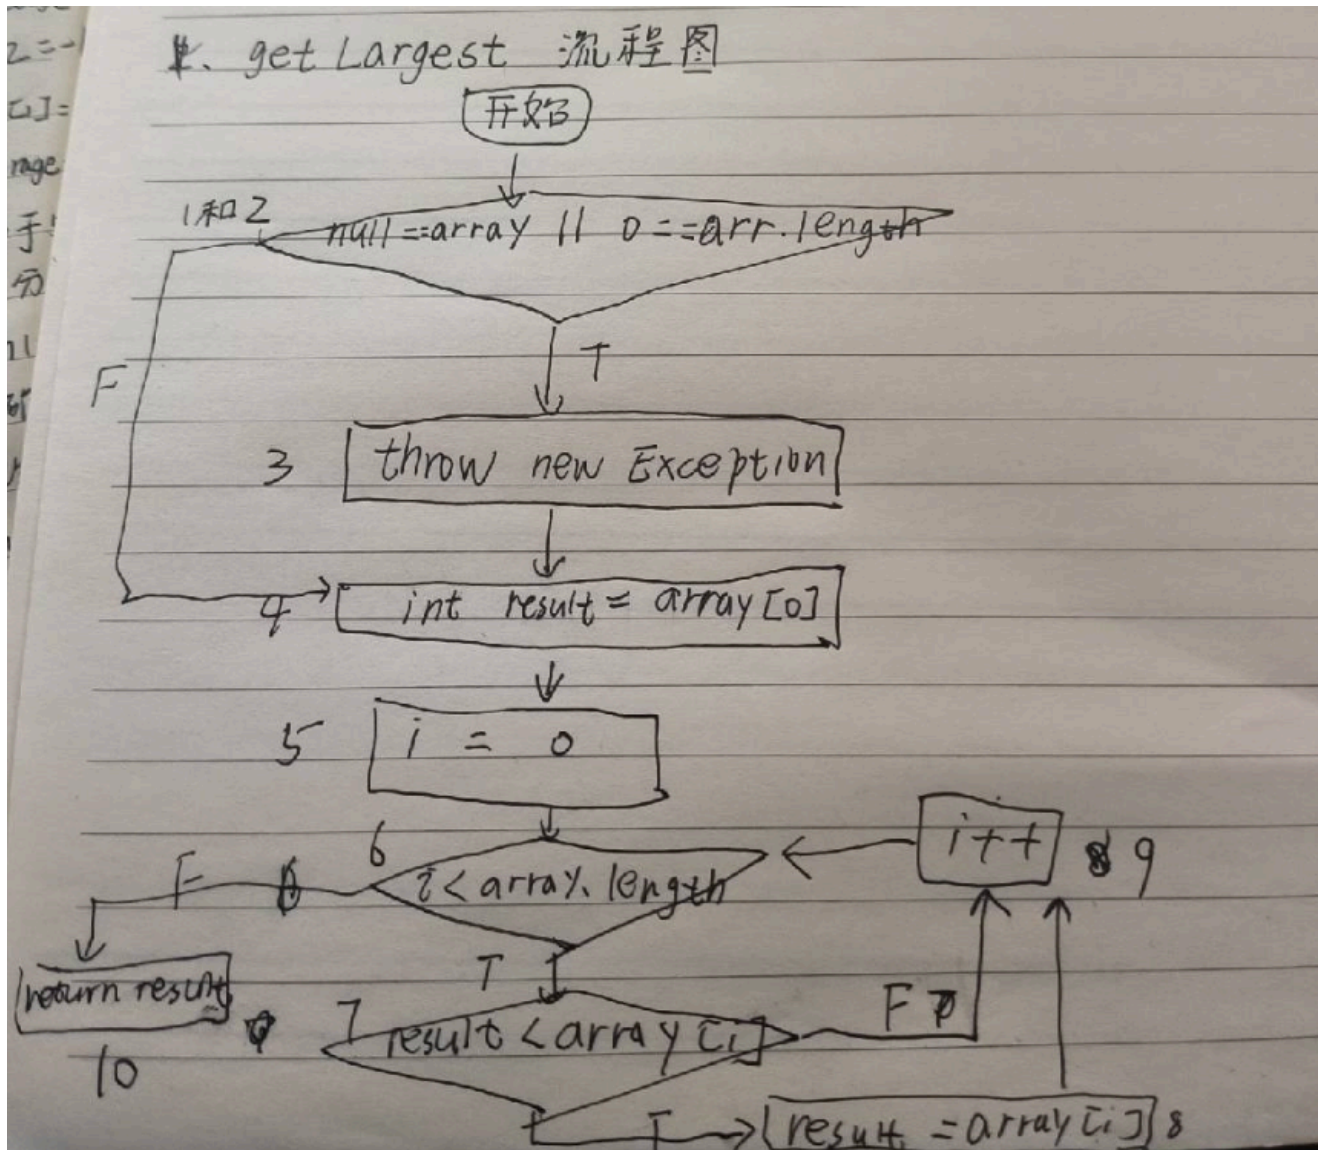 1. getLargest 流程图
开始
1和2
null==array || 0==arr.length
F
T
3
throw new Exception
4
int result = array[0]
5
i = 0
6
i<array.length
i++
9
F
T
return result
10
7
result<array[i]
F
T
result = array[i]
8